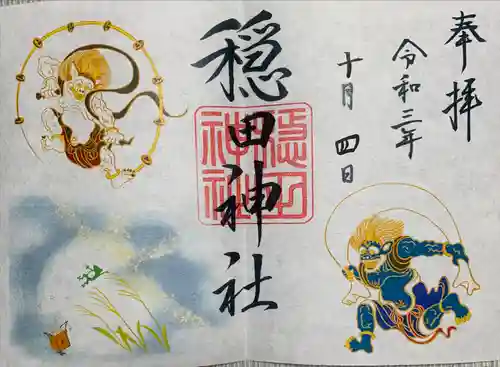 奉拝
令和三年
十月 四日
穏田神社
穏田
神社